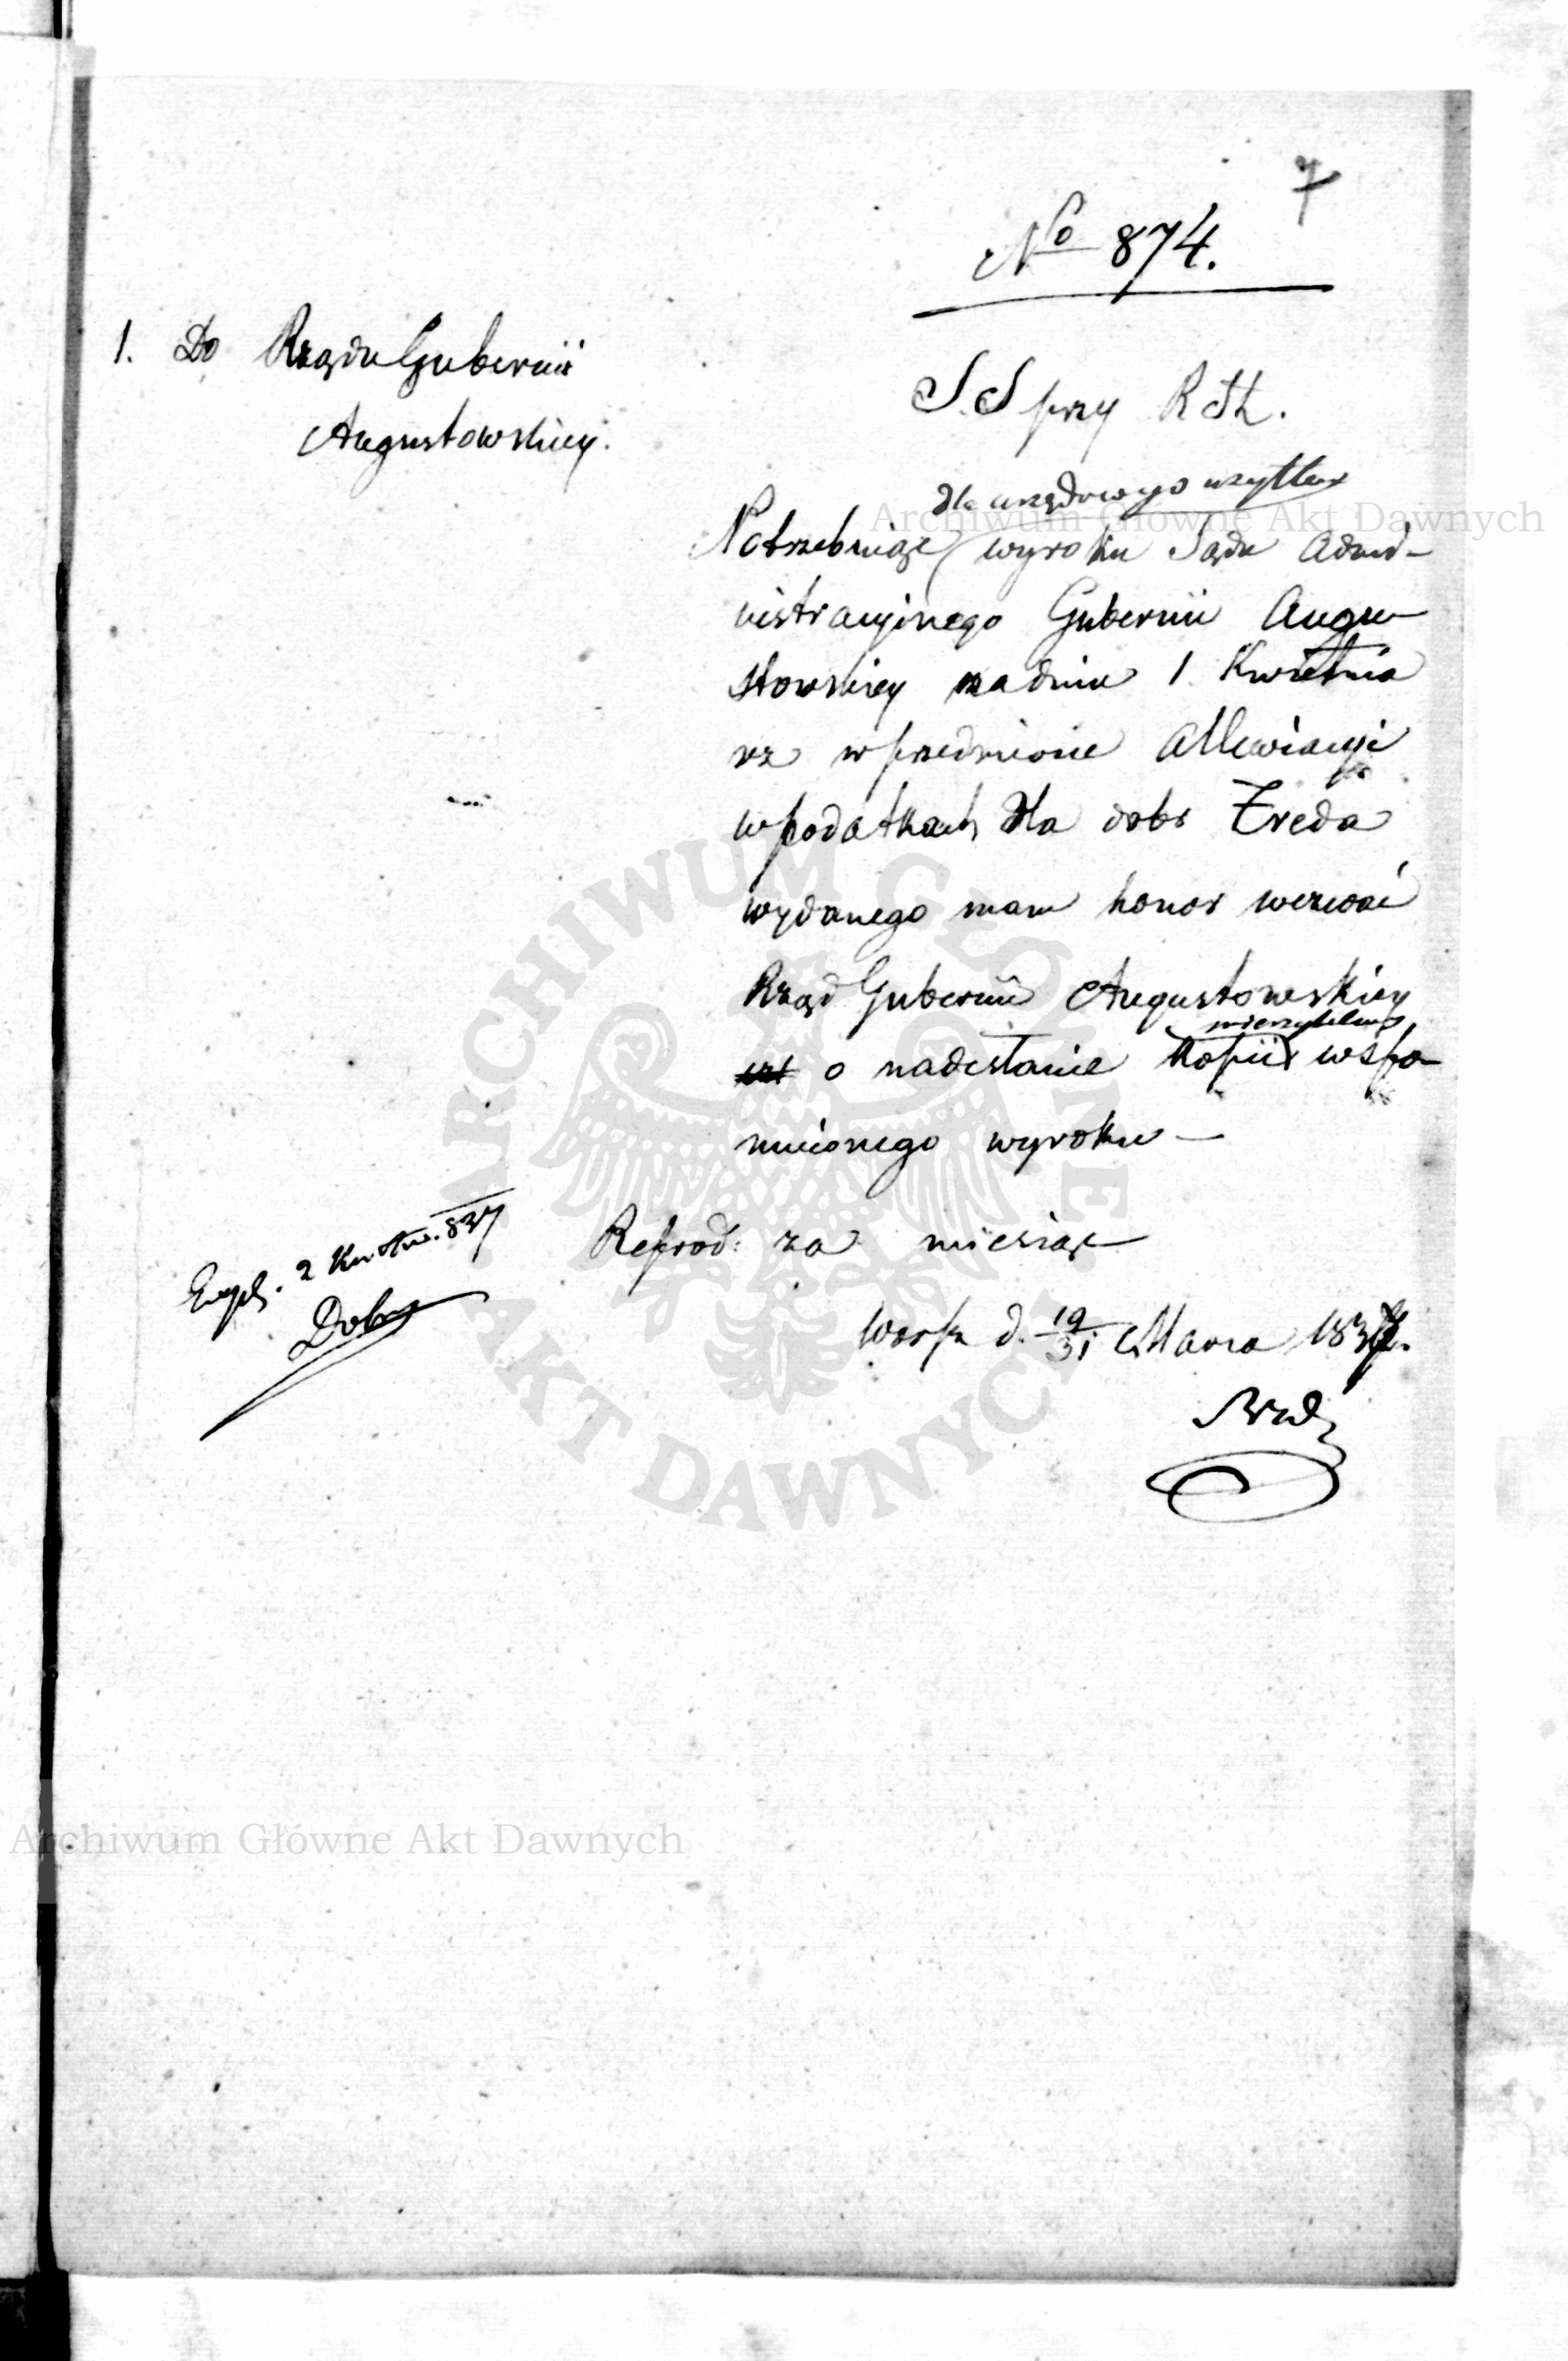 7
No 874.
1. Do Rządu Gubernii
Augustowskiey.
SS przy RSt.
dla urzędowego użytku
Potrzebuiąc wyroku Sądu Admi-
nistracyinego Gubernii Augu-
stowskiey na dniu 1 Kwietnia
rz w przedmiocie Allewiacyi
w podatkach dla dobr Zreda
wydanego mam honor wezwać
Rząd Gubernii Augustowskiey
wierzytelney
o nadesłanie kopii wspo-
mnionego wyroku —
Reprod: za miesiąc
Warsz d. 19/31 Marca 1837.
Exped. 2 Kwietnia 837
Archiwum Główne Akt Dawnych
ARCHIWUM GŁÓWNE AKT DAWNYCH
Archiwum Główne Akt Dawnych